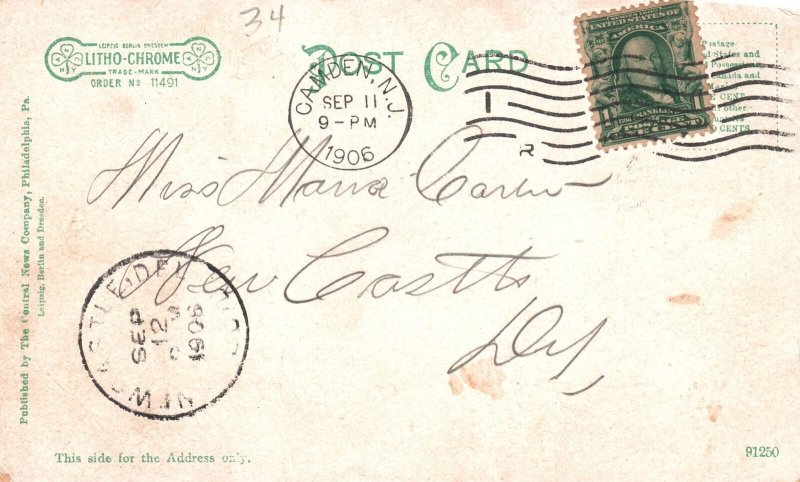 34
LEIPZIG BERLIN DRESDEN
LITHO-CHROME
TRADE-MARK
ORDER No 11491
POST CARD
CAMDEN, N.J.
SEP 11
9-PM
1906
1
R
UNITED STATES OF
AMERICA
Postage
States and
Possession
Canada and
CENT
other
CENTS
Miss
New Castle
Del
NEW CASTLE, DEL.
SEP
12
1906
Published by The Central News Company, Philadelphia, Pa.
Leipzig, Berlin and Dresden.
This side for the Address only.
91250